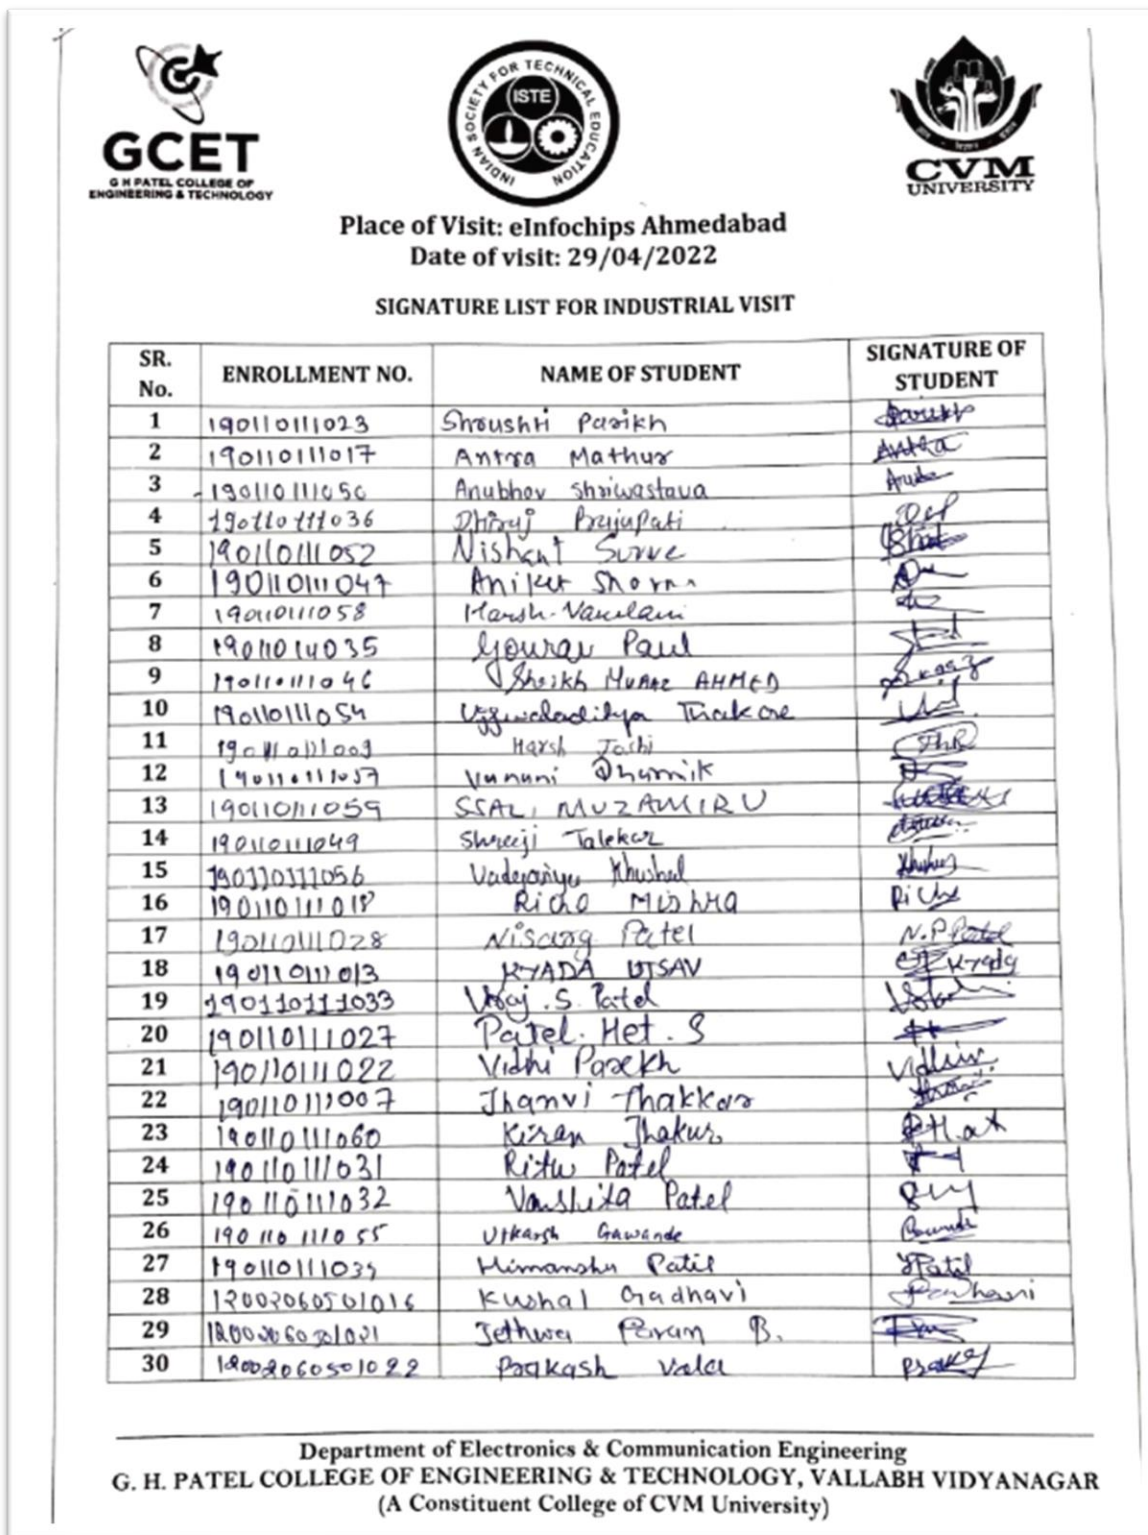 GCET
G H PATEL COLLEGE OF
ENGINEERING & TECHNOLOGY
INDIAN SOCIETY FOR TECHNICAL EDUCATION
ISTE
CVM
UNIVERSITY
Place of Visit: eInfochips Ahmedabad
Date of visit: 29/04/2022
SIGNATURE LIST FOR INDUSTRIAL VISIT
SR. No. ENROLLMENT NO. NAME OF STUDENT SIGNATURE OF STUDENT
1 190110111023 Shroushti Parikh
2 190110111017 Antra Mathur Antra
3 190110111050 Anubhav Shriwastava
4 190110111036 Dhiraj Prajapati
5 190110111052 Nishant Surve
6 190110111047 Aniket
7 190110111058 Harsh
8 Gourav Paul
9 190110111046 Sheikh MUAAZ AHMED
10 190110111054 Ujjwaladitya Thakore
11 190110111009 Harsh Joshi
12 190110111057 Dharmik
13 190110111059 SSALI MUZAMIRU
14 190110111049 Shreeji Talekar
15 190110111056 Khushal
16 190110111018 Richa Mishra Richa
17 190110111028 Nisarg Patel N.P.Patel
18 190110111013 KYADA UTSAV Kyada
19 190110111033 Vraj .S. Patel
20 190110111027 Patel. Het. S
21 190110111022 Vidhi Parekh
22 190110111007 Jhanvi Thakkar
23 190110111060 Kiran Thakur
24 190110111031 Ritu Patel
25 190110111032 Vanshita Patel
26 190110111055 Utkarsh Gawande
27 Himanshu Patil Patil
28 12002060501016 Kushal Gadhavi
29 Jethwa Param B.
30 12002060501022 Prakash Vala
Department of Electronics & Communication Engineering
G. H. PATEL COLLEGE OF ENGINEERING & TECHNOLOGY, VALLABH VIDYANAGAR
(A Constituent College of CVM University)